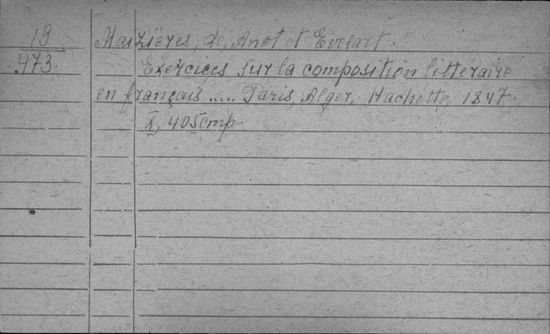 19
473.
Maizières, de, Anot et Evelart.
Exercices sur la composition littéraire
en français .... Paris, Alger, Hachette, 1847.
X, 405 стр.